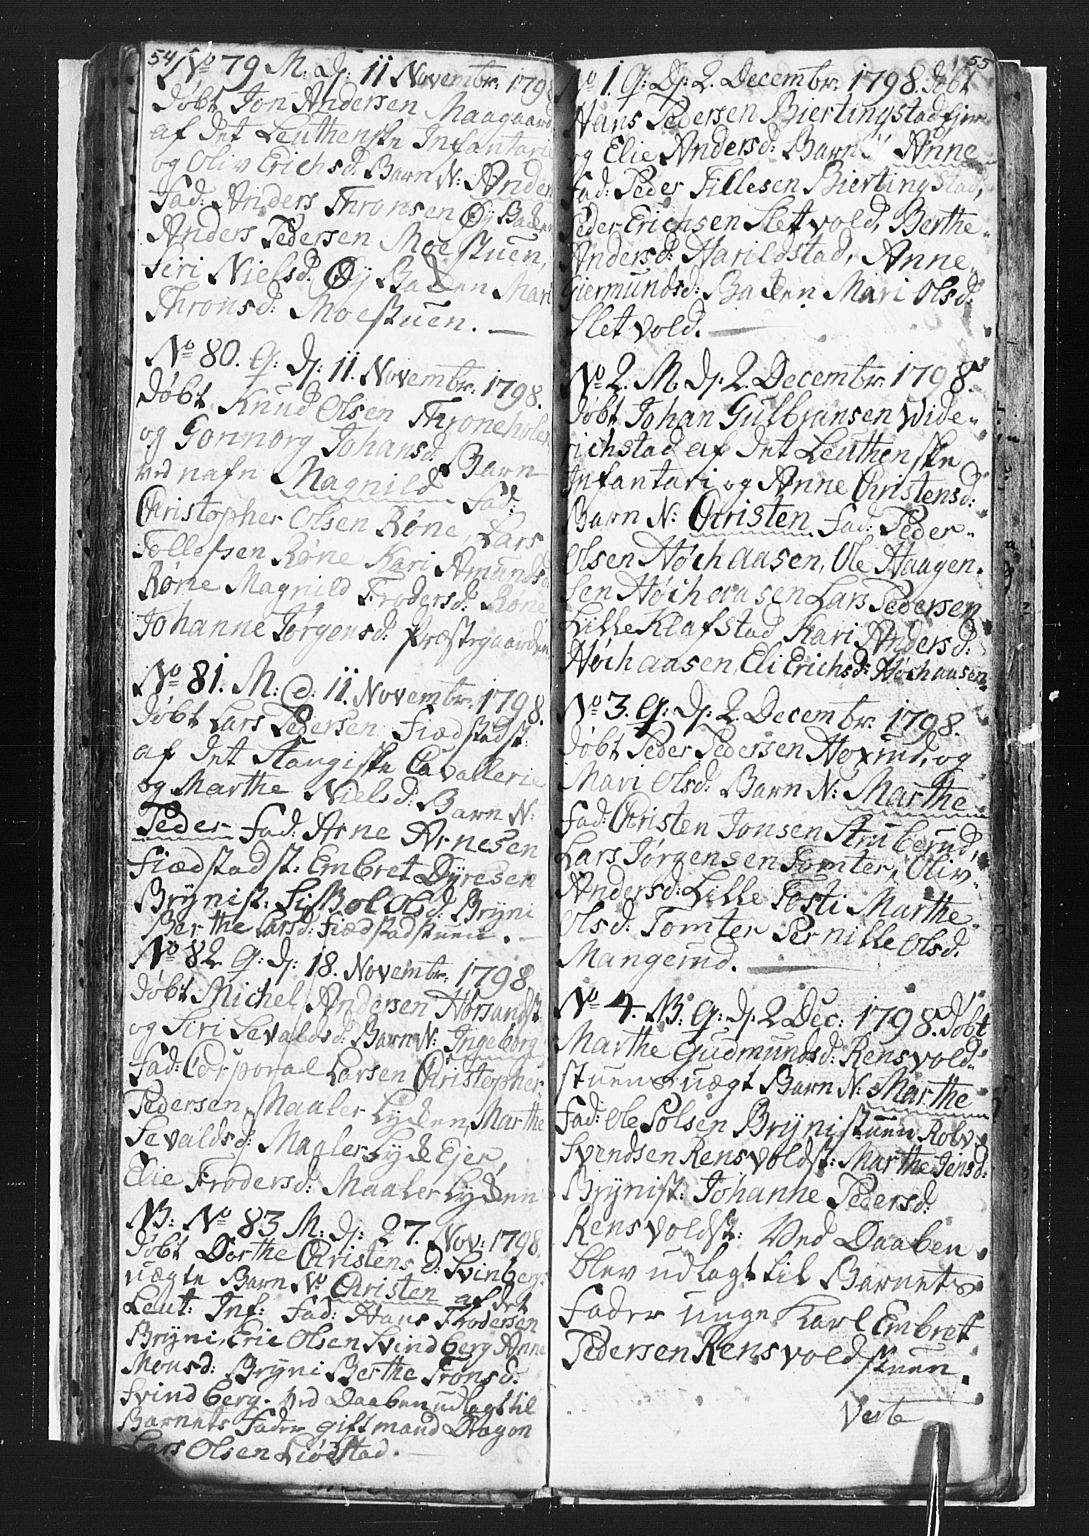 54
No 79 M: dj: 11 Novembr. 1798
døbt Jon Andersen Maagaard
af det Leuthenske Infantarie
og Oliv Erichsd: Barn N: Anders
fad: Anders Thronsen Øy Baken
Anders Pedersen Moestuen,
Siri Nielsd: Øy Baken Mari
Thronsd: Moestuen.
No 80. G: dj: 11. Novembr. 1798.
døbt Knud Olsen Throneholen
og Gonnorg Johansd: Barn
ved nafn Magnild fad:
Christopher Olsen Røne, Lars
Tollefsen Røne Kari Amundsd:
Røne Magnild Frodersd: Røne
Johanne Jørgensd: Præstegaarden
No 81. M: d: 11. Novembr. 1798.
døbt Lars Pedersen Fiædstadst:
af det Stangiske Cavallerie
og Marthe Nielsd: Barn N:
Peder fad: Arne Arnesen
Fiædstadst. Embret Dyresen
Brynist: Olsd: Bryni
Berthe Larsd: Fiædstadstuen.
No 82 G: dj: 18. Novembr. 1798.
døbt Michel Andersen Horsandst:
og Siri Sevaldsd: Barn N: Ingeborg
fad: Corporal Larsen Christopher
Pedersen Maaler Lyken, Marthe
Sevaldsd: Maaler Lyk Ejer,
Elie Frodersd: Maaler Lykken
NB: No 83 M: dj: 27. Nov: 1798.
døbt Dorthe Christensd: Svinberg:
uægte Barn No Christen af det
Leut: Inf: fad: Hans Frodersen
Bryni, Eric Olsen Svindberg Anne
Monsd: Bryni Berthe Tronsd:
Svindberg. Ved Daaben udlagt til
Barnets Fader gift mand Dragon
Lars Olsen Liøstad.
55
No 1. G: Dj: 2. Decembr. 1798. døbt
Hans Pedersen Biertingstadfjer
og Elie Andersd: Barn N Anne
fad: Peder Tillesen Biertingstad,
Peder Erichsen Sletvold, Berthe
Andersd: Harildstad, Anne
Giermundsd: Baken Mari Olsd:
Sletvold.
No 2. M. dj: 2. Decembr. 1798
døbt Johan Gulbransen Wide-
richstad af det Leuthenske
Infantari og Anne Christensd:
Barn N: Christen fad: Peder
Olsen Høchaasen, Ole Haagen-
sen Høchaasen Lars Pedersen
Lille Klafstad Kari Andersd:
Høchaasen Eli Erichsd: Høchaasen
No 3. G. dj: 2. Decembr. 1798.
døbt Peder Pedersen Hoxmd, og
Mari Olsd: Barn N: Marthe
fad: Christen Jonsen Struberud,
Lars Jørgensen Tomter, Oliv
Andersd: Lille Tosti Marthe
Olsd: Tomter Pernille Olsd.
Mangerud.
No 4. NB: G: dj: 2 Dec: 1798. døbt
Marthe Gudmundsd: Rensvold-
stuens uægt Barn N: Marthe
fad: Ole Polsen Brynistuen Rolv
Svendsen Rensvoldst: Marthe Jensd:
Brynist: Johanne Pedersd:
Rensvoldst: Ved Daaben
blev udlagt til Barnets
Fader unge Karl Embret
Pedersen Rensvoldstuen.